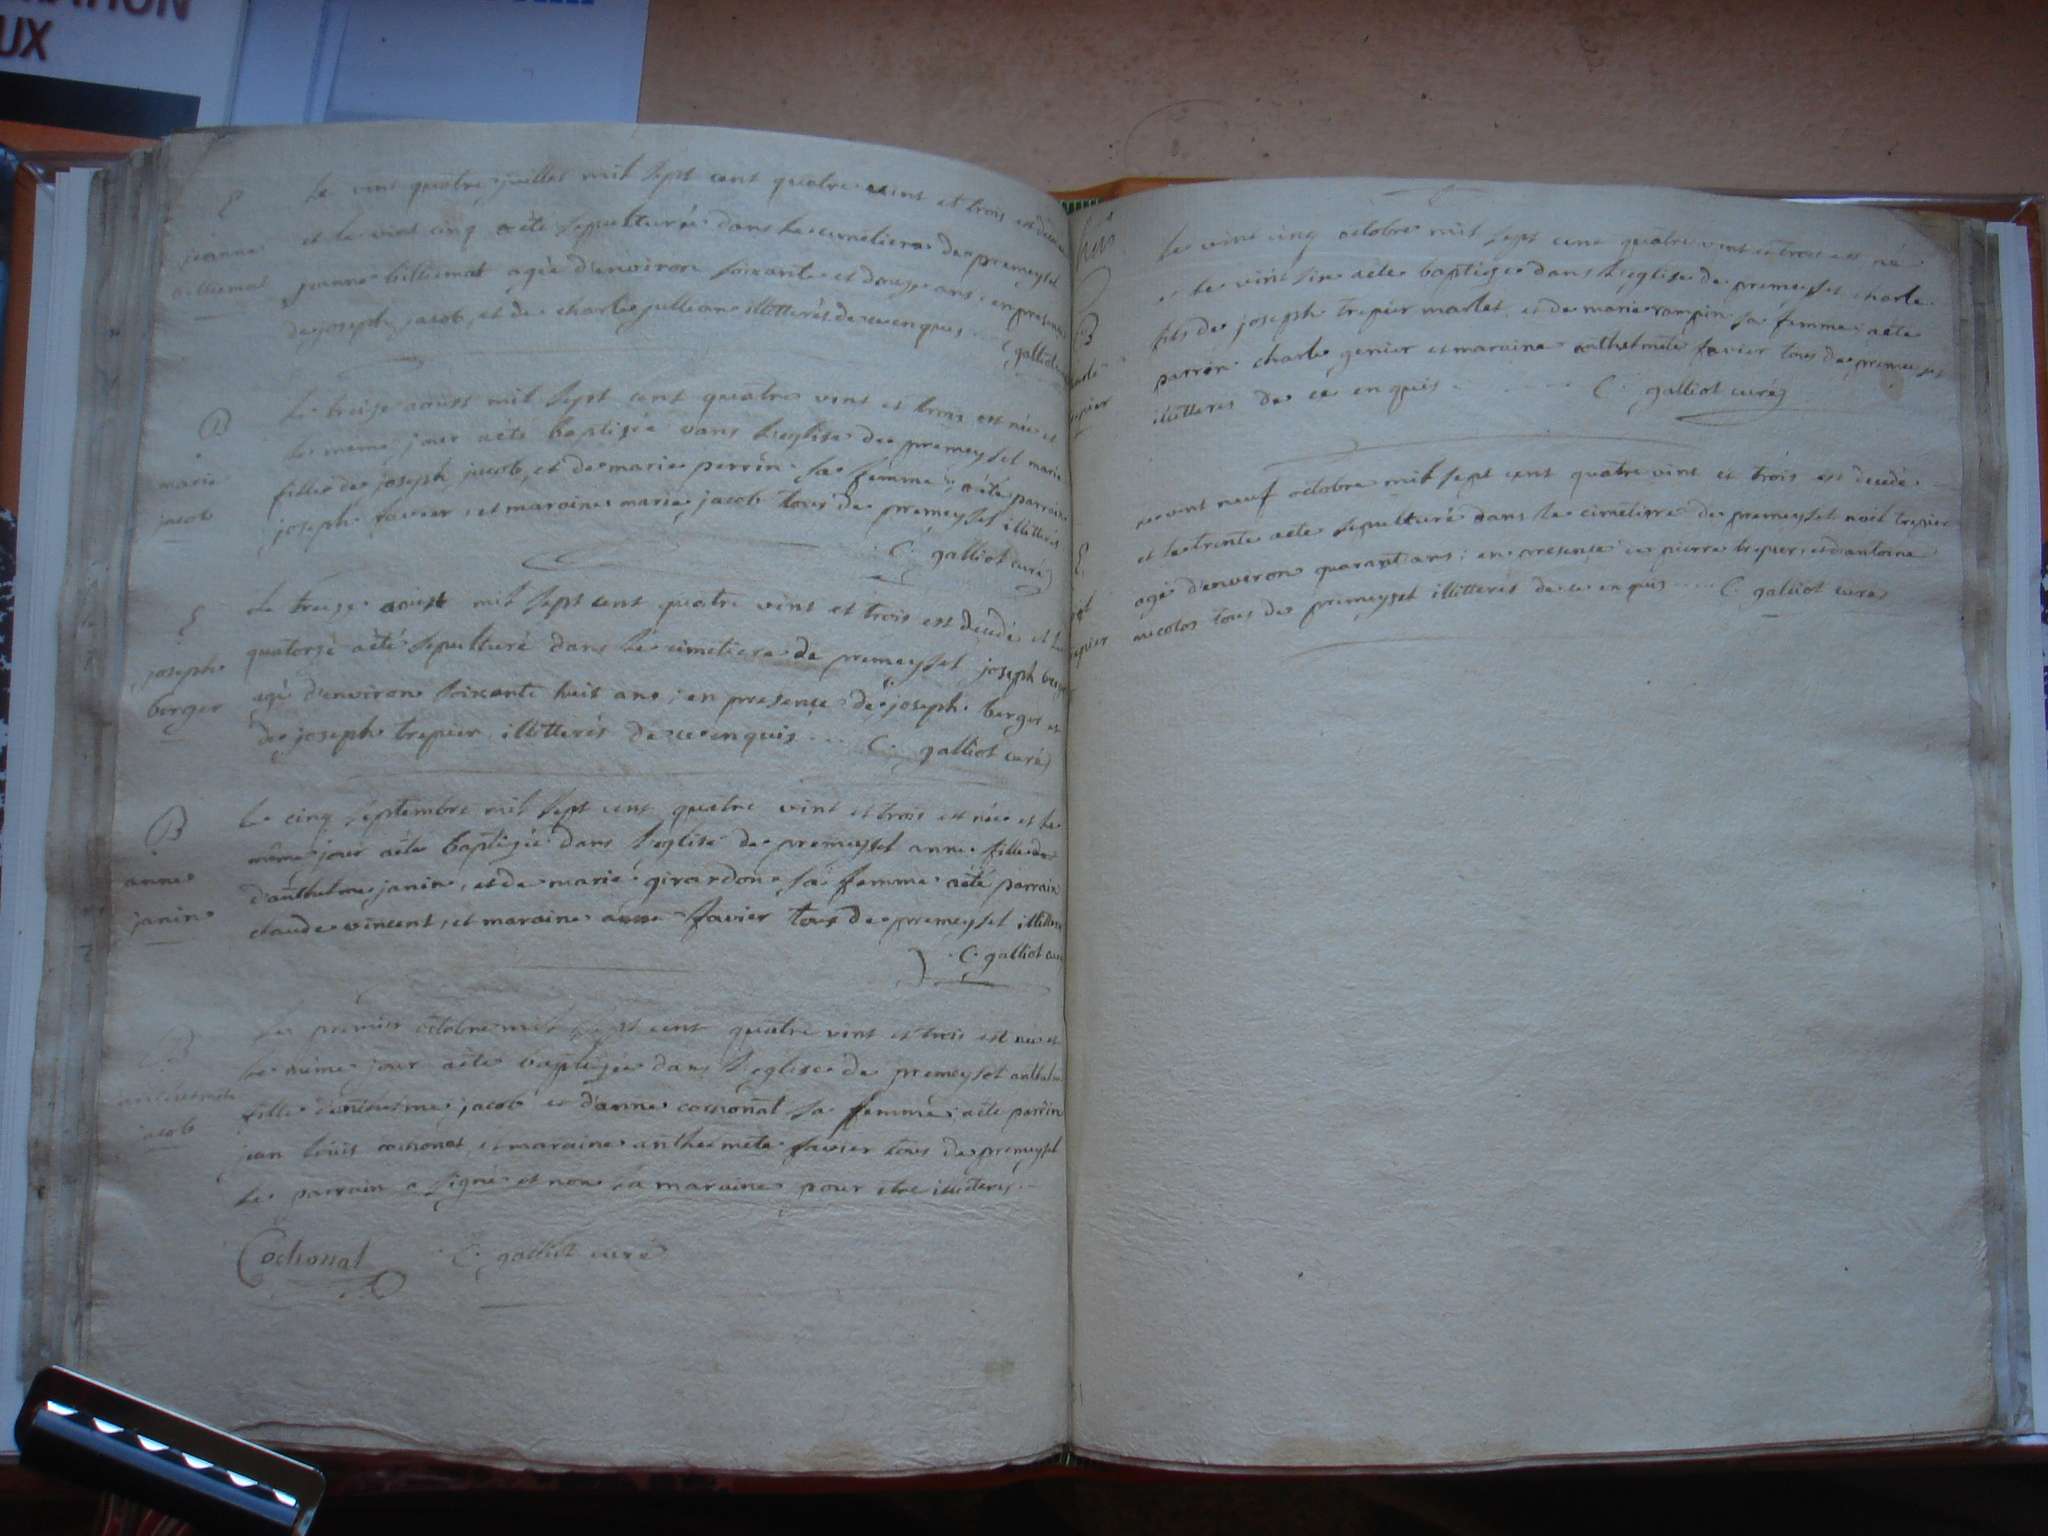 UX
E
jeanne
billiemat
Le vint quatre juillet mil sept cent quatre vint et trois est decedée
et le vint cinq aété sepulturée dans le cimetiere de premeysel
jeanne billiemat agée d'environ soixante et douze ans, en presence
de joseph jacob, et de charle jullian illitterés de ce enquis
galliot
B
marie
jacob
Le treize aoust mil sept cent quatre vint et trois est née et
le meme jour aété baptisée dans l'eglise de premeysel marie
fille de joseph jacob, et de marie perrin sa femme; aété parrain
joseph favier, et maraine marie jacob tous de premeysel illitterés
C. galliot curé
E
joseph
berger
Le treize aoust mil sept cent quatre vint et trois est decedé et le
quatorsé aété sepulturé dans le cimetiere de premeysel joseph berger
agé d'environ soixante huit ans; en presence de joseph berger et
de joseph trepier illitterés de ce enquis .... C. galliot curé
B
anne
janin
Le cinq septembre mil sept cent quatre vint et trois est née et le
même jour aété baptisée dans l'eglise de premeysel anne fille
d'anthelme janin, et de marie girardon sa femme aété parrain
claude vincent, et maraine anne favier tous de premeysel illitterés
C. galliot curé
B
anthelmete
jacob
Le premier octobre mil sept cent quatre vint et trois est née et
le même jour aété baptisée dans l'eglise de premeysel anthelmete
fille d'anthelme jacob et d'anne cochonat sa femme; aété parrin
jean louis cochonat, et maraine anthelmete favier tous de premeysel
le parrain a signé et non la maraine pour etre illiterés
Cochonat C. galliot curé
B
charle
trepier
Le vint cinq octobre mil sept cent quatre vint et trois est né
et le vint six aété baptisé dans l'eglise de premeysel charle
fils de joseph trepier marlet, et de marie rampin sa femme; aété
parrin charle genier et maraine anthelmete favier tous de premeysel
illitteres de ce enquis .... C. galliot curé
E
trepier
Le vint neuf octobre mil sept cent quatre vint et trois est decedé
et le trente aété sepulturé dans le cimetiere de premeysel noel trepier
agé d'environ quarant ans; en presence de pierre trepier, et d'antoine
micolos tous de premeysel illitterés de ce enquis .... C. galliot curé